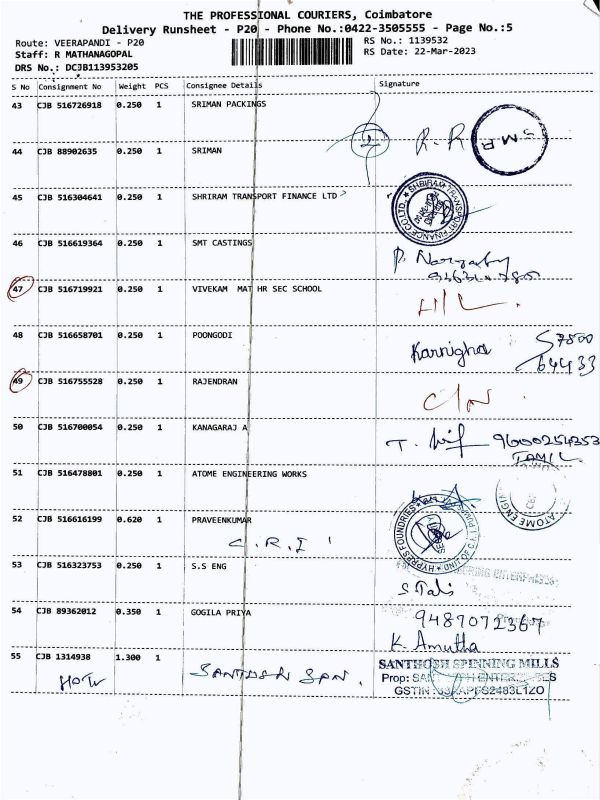 THE PROFESSIONAL COURIERS, Coimbatore
Delivery Runsheet - P20 - Phone No.:0422-3505555 - Page No.:5
Route: VEERAPANDI - P20
RS No.: 1139532
Staff: R MATHANAGOPAL
RS Date: 22-Mar-2023
DRS No.: DCJB113953205
S No Consignment No Weight PCS Consignee Details Signature
43 CJB 516726918 0.250 1 SRIMAN PACKINGS
R.R S.M.P
44 CJB 88902635 0.250 1 SRIMAN
45 CJB 516304641 0.250 1 SHRIRAM TRANSPORT FINANCE LTD
SHRIRAM TRANSPORT FINANCE CO. LTD.
46 CJB 516619364 0.250 1 SMT CASTINGS
47 CJB 516719921 0.250 1 VIVEKAM MAT HR SEC SCHOOL
H/L
48 CJB 516658701 0.250 1 POONGODI
Kannigha 57800
64433
49 CJB 516755528 0.250 1 RAJENDRAN
C/N
50 CJB 516700054 0.250 1 KANAGARAJ A
T. 9600254353
TAMIL
51 CJB 516478801 0.250 1 ATOME ENGINEERING WORKS
ATOME ENGI
52 CJB 516616199 0.620 1 PRAVEENKUMAR
C.R.I
HYPRES FOUNDRIES
53 CJB 516323753 0.250 1 S.S ENG
ENTERPRISES
54 CJB 89362012 0.350 1 GOGILA PRIYA
9487072367
K. Amutha
55 CJB 1314938 1.300 1
SANTHOSH SPN.
SANTHOSH SPINNING MILLS
Prop:
GSTIN